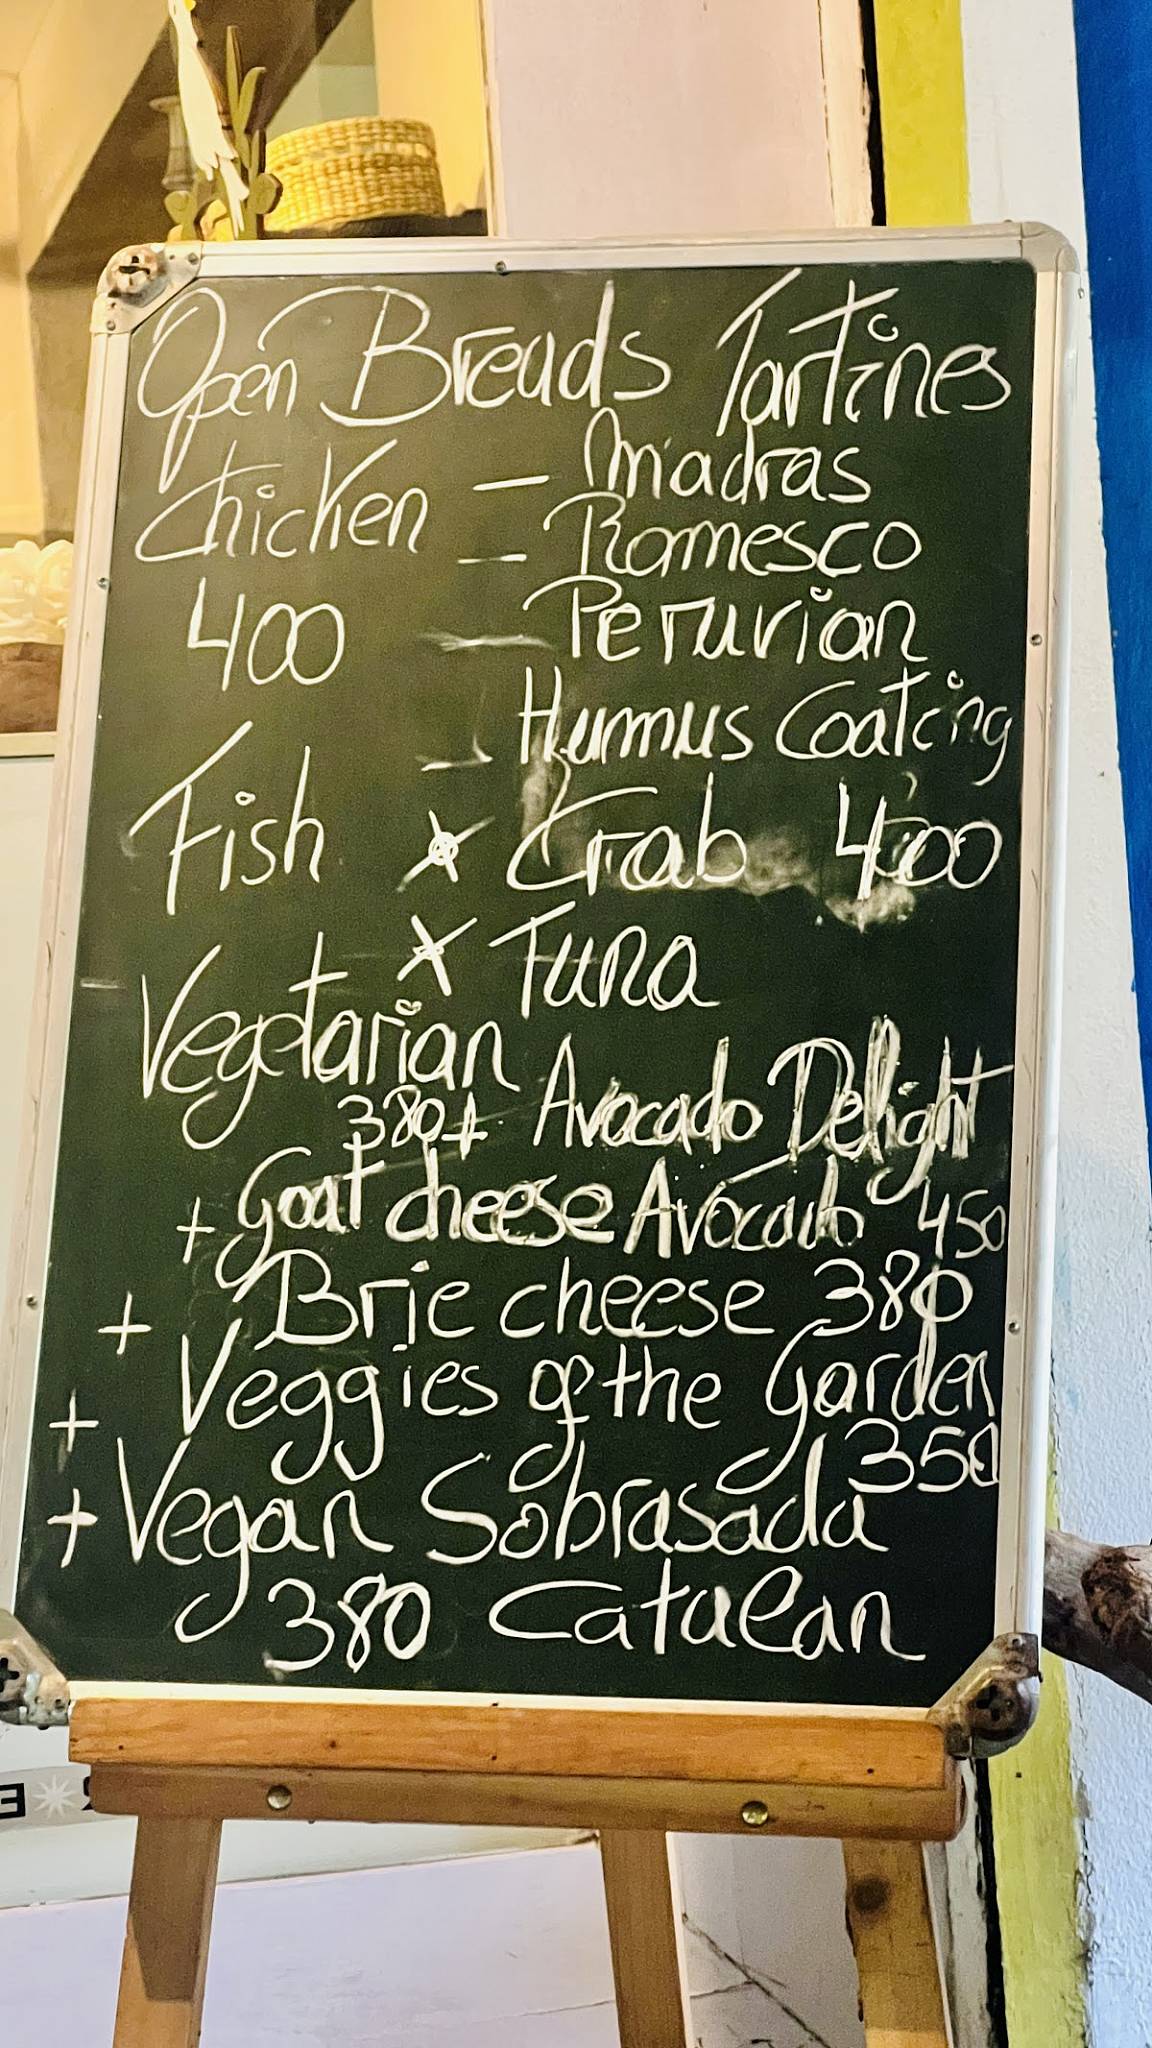 Open Breads Tartines
Chicken - Madras
- Romesco
400 - Peruvian
- Humus Coating
Fish x Crab 400
x Tuna
Vegetarian
380 + Avocado Delight
+ Goat cheese Avocado 450
+ Brie cheese 380
+ Veggies of the Garden
350
+ Vegan Sobrasada
380 Catalan